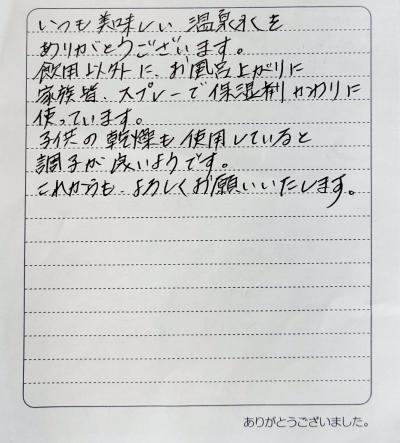 いつも美味しい温泉水を
ありがとうございます。
飲用以外に、お風呂上がりに
家族皆、スプレーで保湿剤かわりに
使っています。
子供の乾燥も使用していると
調子が良いようです。
これからも、よろしくお願いいたします。
ありがとうございました。